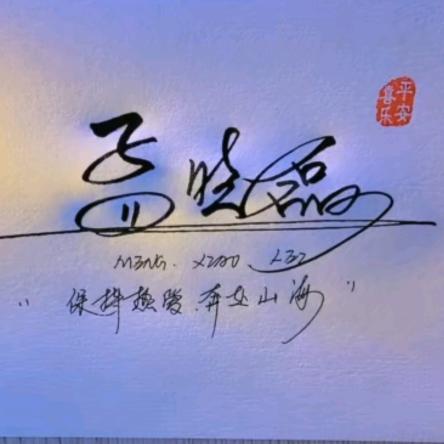 平安
喜乐
孟晓磊
MENG. XIAO. LEI
“保持热爱.奔赴山海”